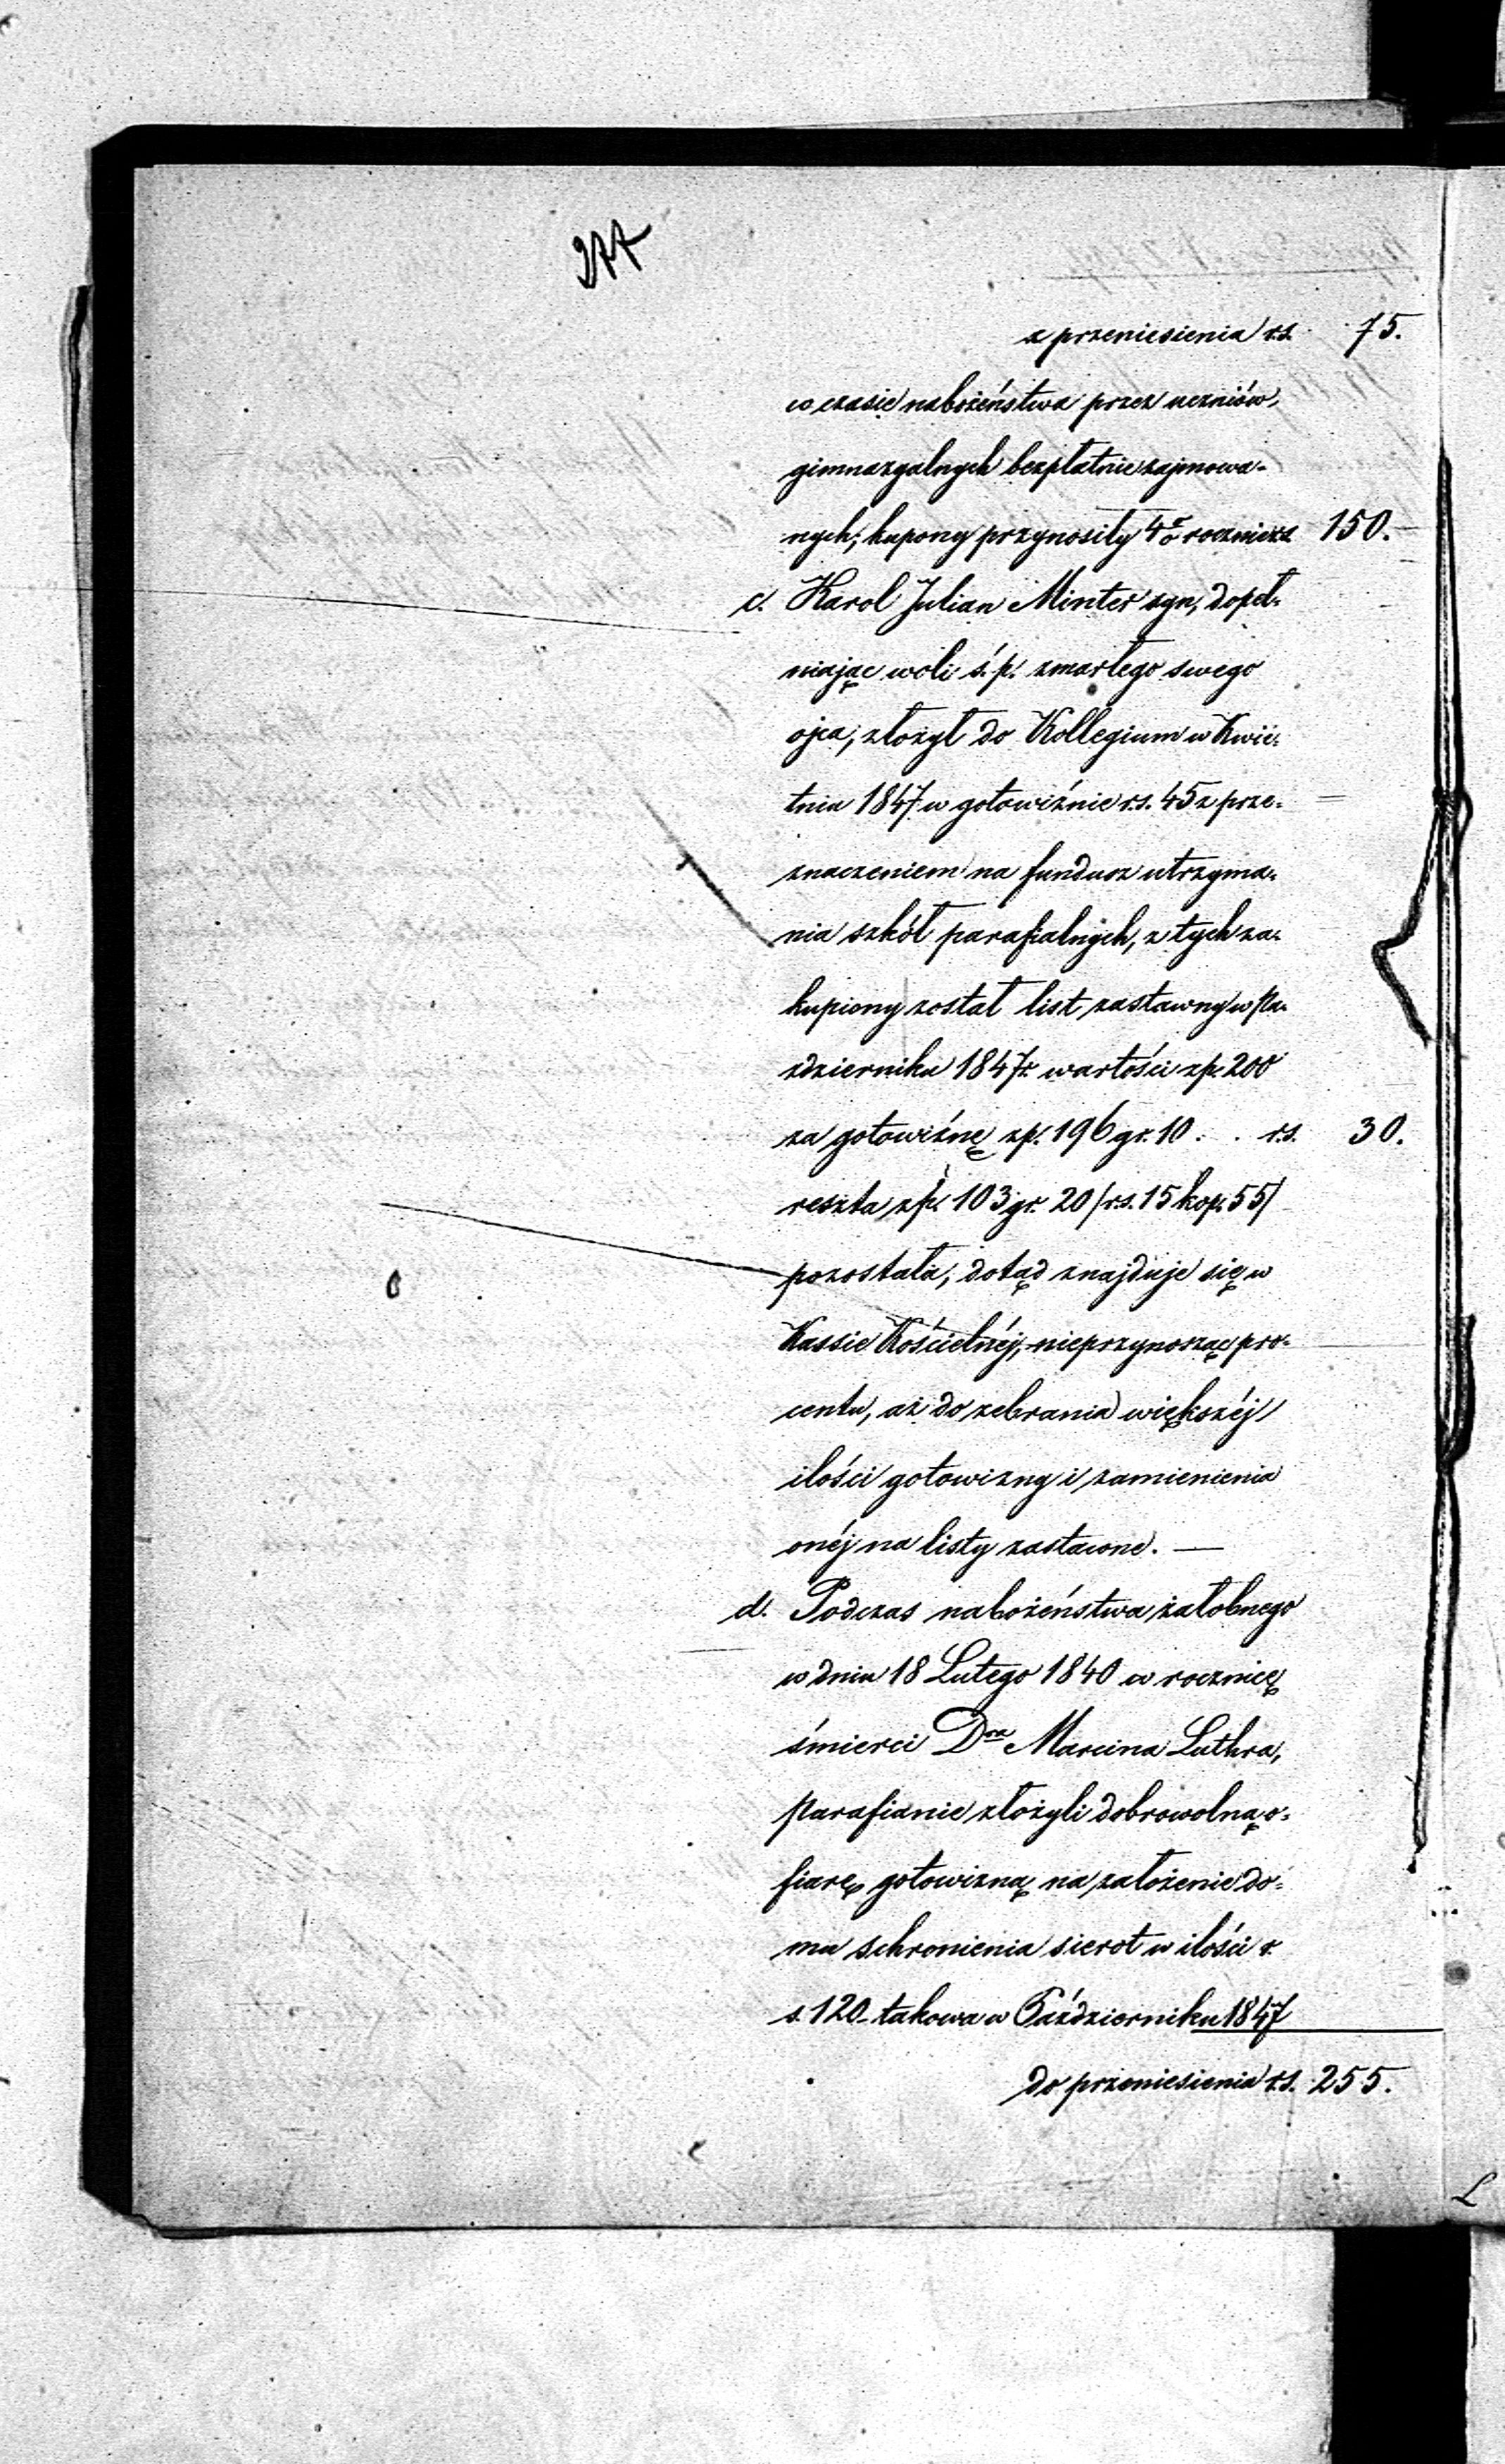 277
z przeniesienia r.s. 75.
w czasie nabożeństwa przez uczniów,
gimnazyalnych bezpłatnie zajmowa-
nych; kupony przynosiły 4% rocznie r.s. 150.
c. Karol Julian Minter syn, dopeł-
niając woli ś.p. zmarłego swego
ojca, złożył do Kollegium w Kwie-
tniu 1847 w gotowiźnie r.s. 45 z prze-
znaczeniem na fundusz utrzyma-
nia szkół parafialnych, z tych za-
kupiony został list zastawny w Pa-
ździerniku 1847 r. wartości zp. 200
za gotowiznę zp. 196 gr. 10 . . r.s. 30.
reszta zp. 103 gr. 20 /r.s. 15 kop. 55/
pozostała, dotąd znajduje się w
Kassie Kościelnéj, nieprzynosząc pro-
centu, aż do zebrania większéj
ilości gotowizny i zamienienia
onéj na listy zastawne. —
d. Podczas nabożeństwa żałobnego
w dniu 18 Lutego 1840 w rocznicę
śmierci Dra Marcina Luthra,
Parafianie złożyli dobrowolną o-
fiarę gotowizną na założenie do-
mu schronienia sierot w ilości r.
s. 120 takowa w Październiku 1847
do przeniesienia r.s. 255.